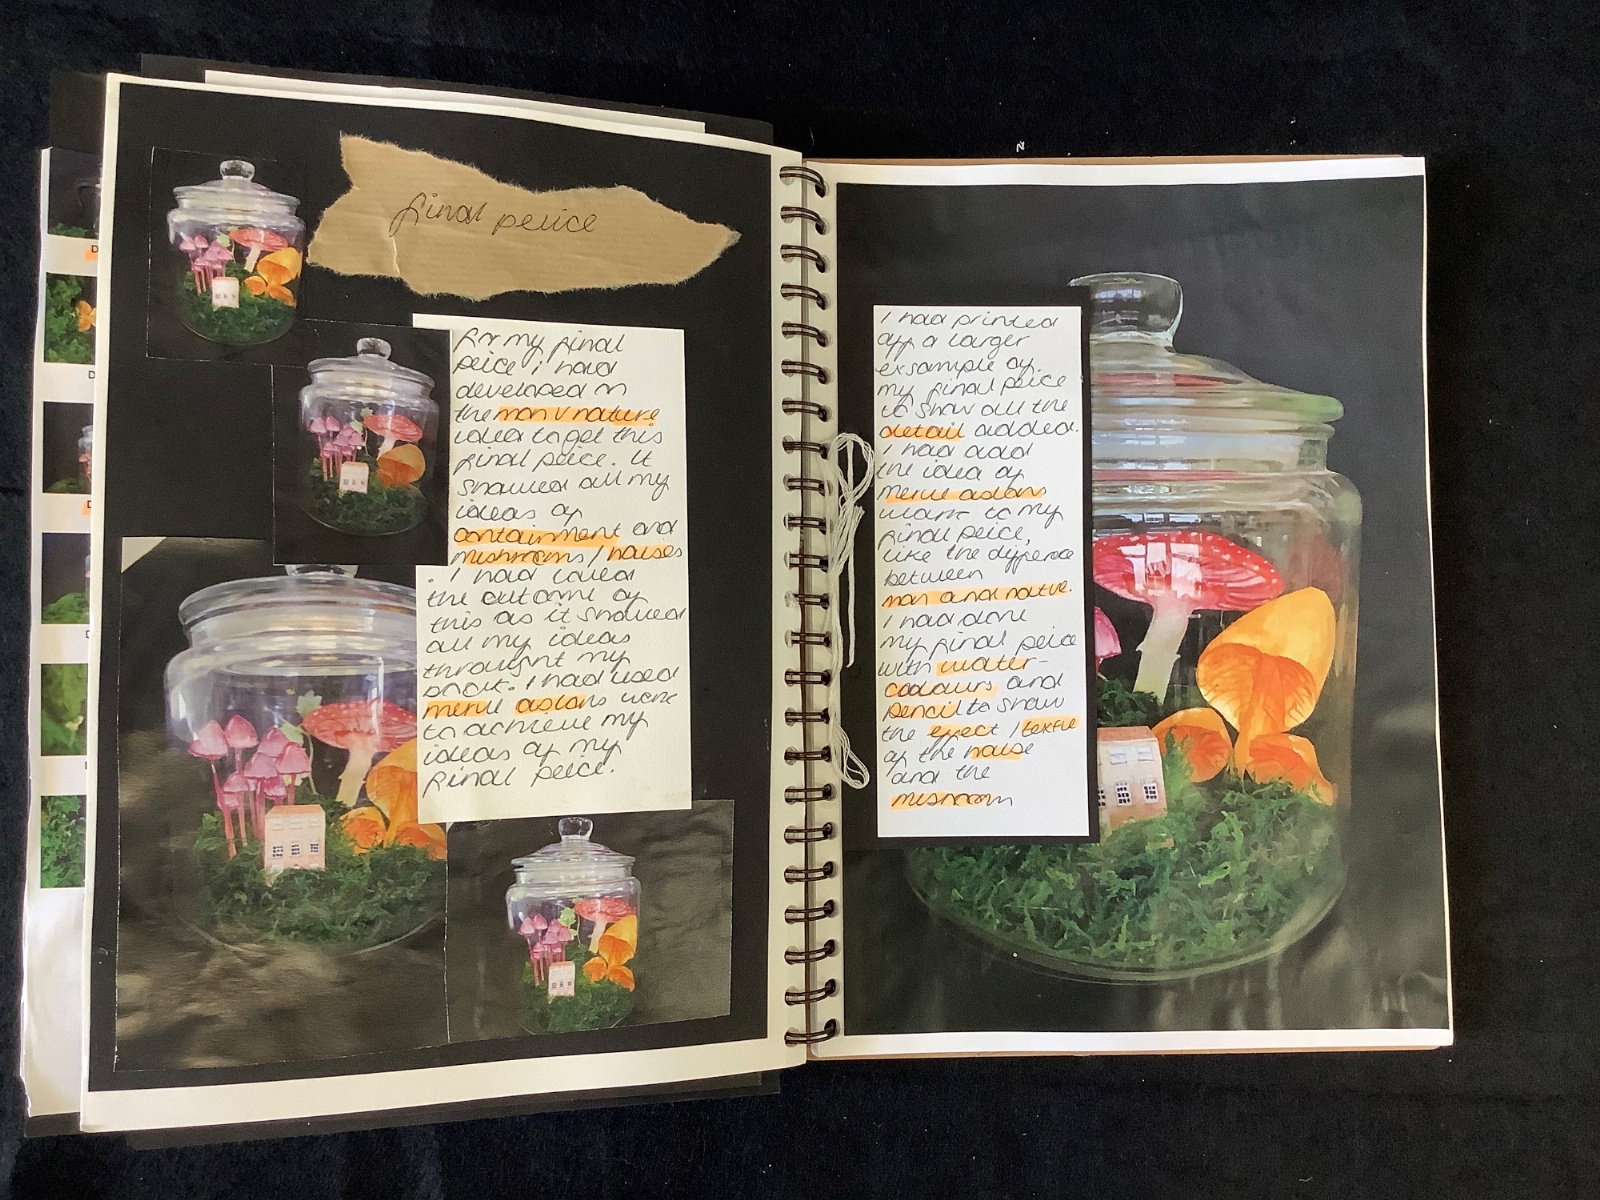 final peice
for my final
peice i had
developed on
the man v nature
idea to get this
final peice. It
showed all my
ideas of
containment and
mushrooms / houses
. I had loved
the outcome of
this as it showed
all my ideas
throught my
book. I had used
merve aslans work
to achieve my
ideas of my
final peice.
I had printed
off a larger
exsample of
my final peice
to show all the
detail added.
I had add
the idea of
merve aslans
work to my
final peice,
like the
between
man and nature.
I had done
my final peice
with water-
colours and
pencil to show
the effect /
of the house
and the